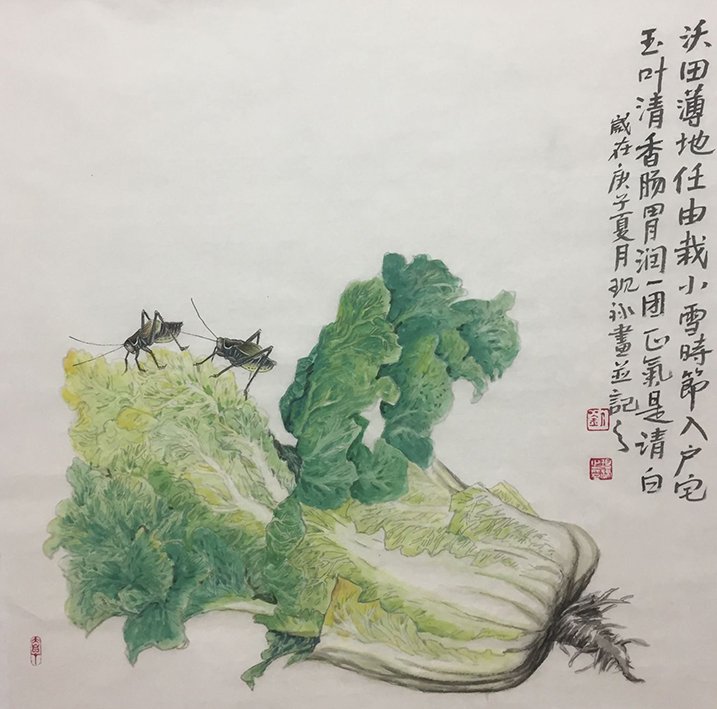 沃田薄地任由栽小雪時節入户宅
玉叶清香肠胃润一团正氣是请白
歲在庚子夏月
畫並記之